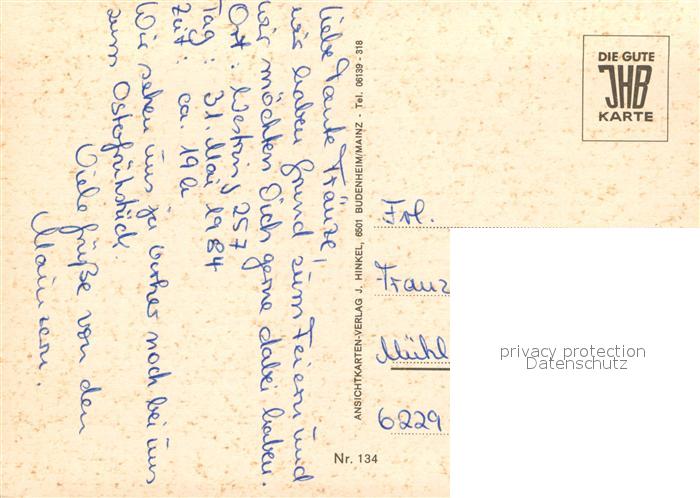 Liebe Tante Fränze,
wir haben Grund zum Feiern und
wir möchten Dich gerne dabei haben.
Ort: Westring 257
Tag: 31. Mai 1984
Zeit: ca. 19 h
Wir sehen uns ja vorher noch bei uns
zum Osterfrühstück.
Viele Grüße von den
Mainzern.
ANSICHTKARTEN-VERLAG J. HINKEL, 6501 BUDENHEIM/MAINZ - Tel. 06139 - 318
DIE GUTE
JHB
KARTE
Frl.
Franz
Mühl
6229
Nr. 134
privacy protection
Datenschutz